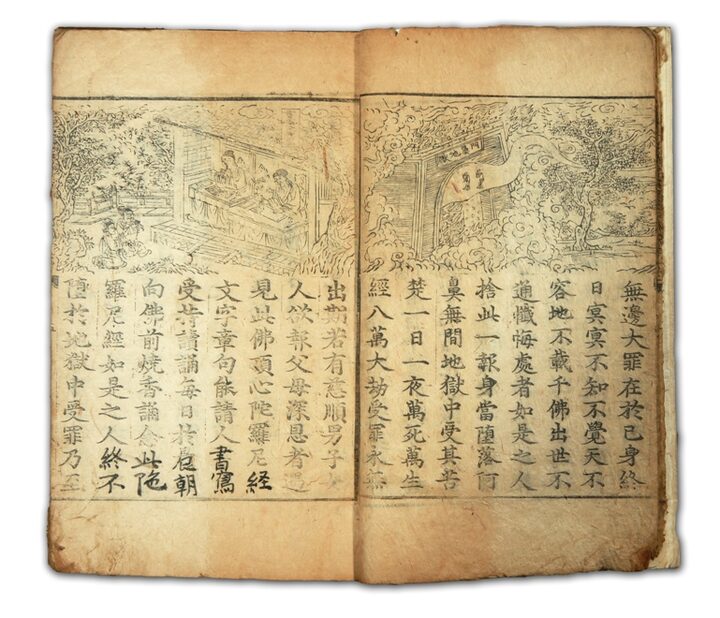 阿鼻地獄
無邊大罪在於己身終
日冥冥不知不覺天不
容地不載千佛出世不
通懺悔處者如是之人
捨此一報身當墮落阿
鼻無間地獄中受其苦
楚一日一夜萬死萬生
經八萬大劫受罪永無
出期若有慈順男子
人欲報父母深恩者遇
見此佛頂心陀羅尼経
文字章句能請人書寫
受持讀誦每日於晨朝
向佛前燒香誦念此陁
羅尼經如是之人終不
墮於地獄中受罪乃至